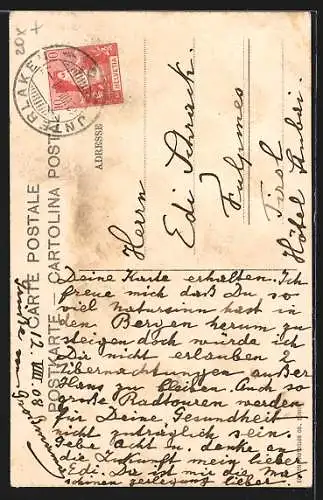 20x
CARTE POSTALE
POSTKARTE — CARTOLINA POST
ADRESSE
INTERLAKE
HELVETIA
10
Herrn
Edi Schrack
Fulpmes
Tirol
Hôtel
Deine Karte erhalten. Ich
freue mich daß Du so
viel natursinn hast in
den Bergen herum zu
steigen doch würde ich
Dir nicht erlauben 2
Übernachtungen außer
Haus zu bleiben. Auch so
große Radtouren werden
für Deine Gesundheit
nicht zuträglich sein.
Gebe Acht u. denke an
die Zukunft mein lieber
Edi. Die ist mir die Ma-
schinen zerlegung lieber.
12. VIII. 08